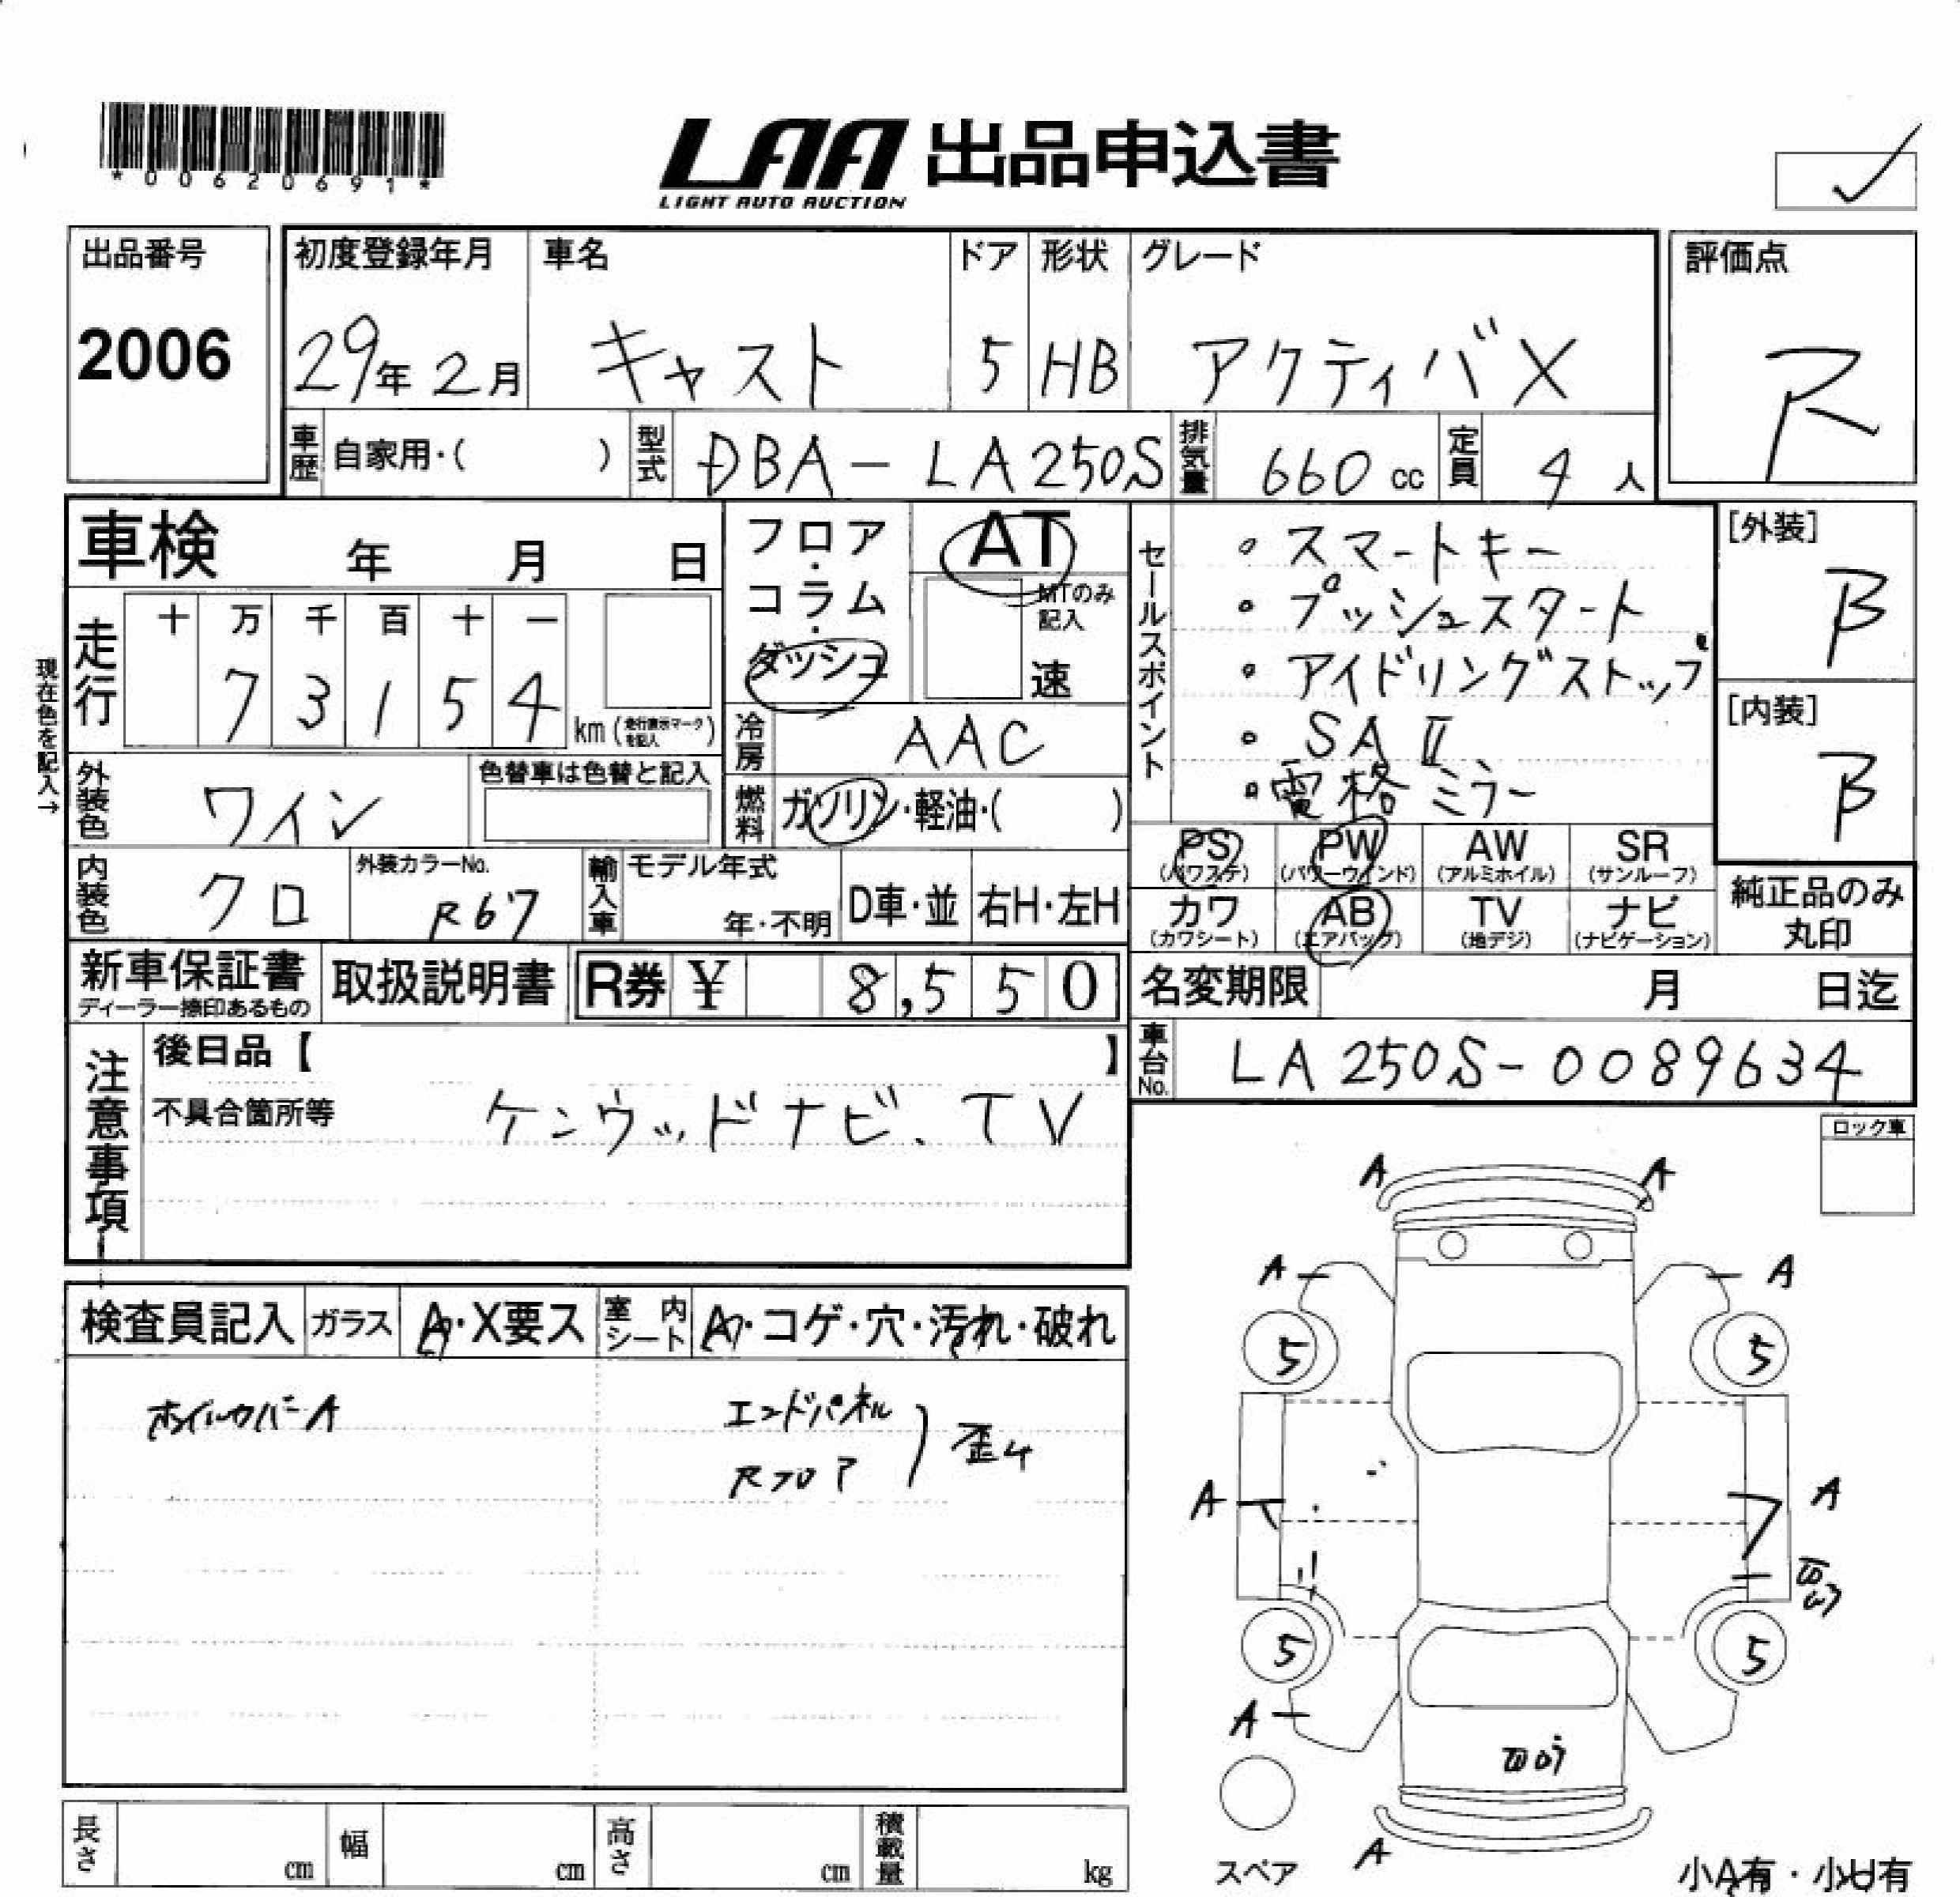 *00620691*
LAA 出品申込書
LIGHT AUTO AUCTION
出品番号
2006
初度登録年月
29年 2月
車名
キャスト
ドア
5
形状
HB
グレード
アクティバX
評価点
R
車歴 自家用・( )
型式 DBA-LA250S
排気量 660 cc
定員 4 人
車検 年 月 日
フロア・コラム・ダッシュ
AT
MTのみ記入
速
セールスポイント
・スマートキー
・プッシュスタート
・アイドリングストップ
・SAⅡ
・電格ミラー
[外装]
B
[内装]
B
現在色を記入→
走行
十 万 千 百 十 一
7 3 1 5 4
km (走行表示マークを記入)
冷房 AAC
外装色 ワイン
色替車は色替と記入
燃料 ガソリン・軽油・( )
内装色 クロ
外装カラーNo.
R67
輸入車
モデル年式
年・不明
D車・並
右H・左H
PS (パワステ)
PW (パワーウインド)
AW (アルミホイル)
SR (サンルーフ)
カワ (カワシート)
AB (エアバッグ)
TV (地デジ)
ナビ (ナビゲーション)
純正品のみ
丸印
新車保証書
ディーラー捺印あるもの
取扱説明書
R券 ¥ 8,550
名変期限 月 日迄
車台No. LA250S-0089634
注意事項
後日品【 】
不具合箇所等 ケンウッドナビ、TV
ロック車
検査員記入
ガラス A・X要ス
室内シート A・コゲ・穴・汚れ・破れ
ホイルカバーA
エンドパネル
Rフロア
歪み
A A
A A
5 5
A A
5 5
A
A
スペア
小A有・小U有
長さ cm
幅 cm
高さ cm
積載量 kg